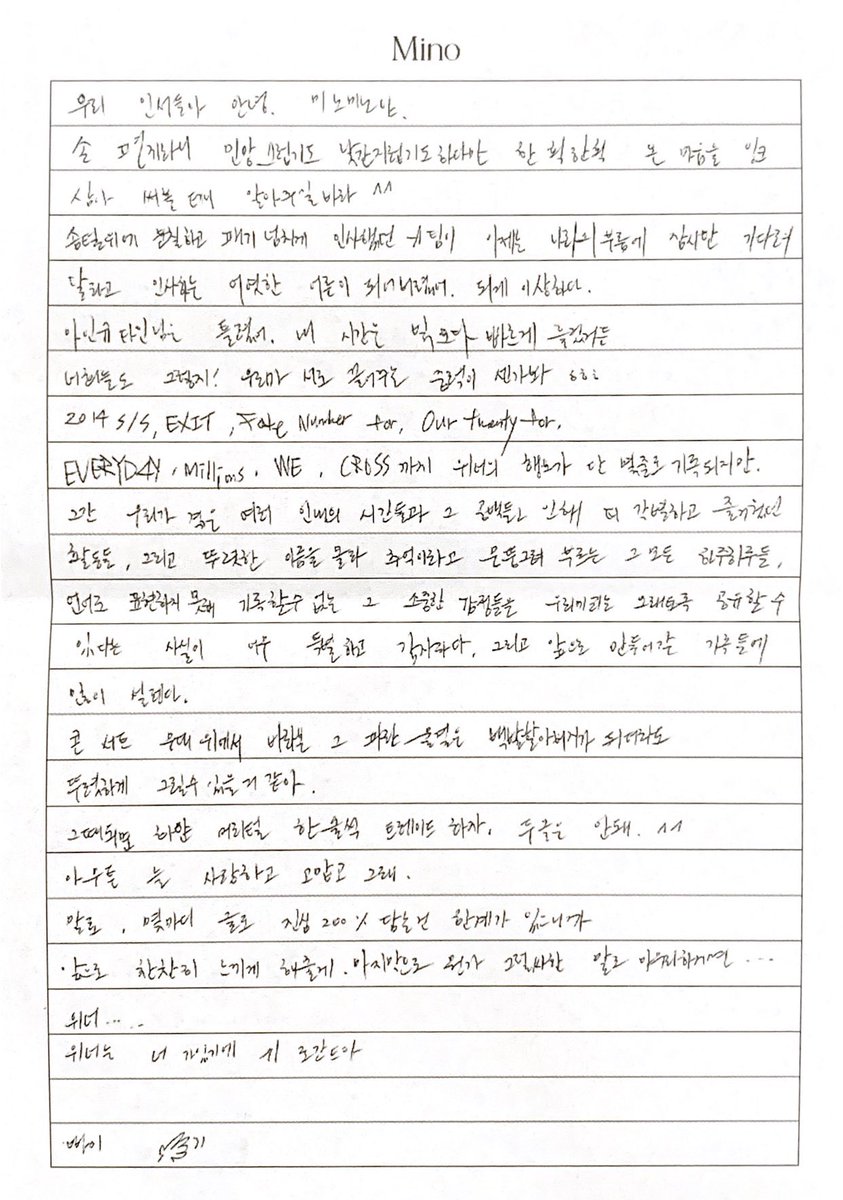 Mino
우리 인서들아 안녕. 미노미노난.
손 편지라서 민망스럽기도 낯간지럽기도하다만 한획한획 온 마음을 잉크
삼아 써볼 테니 알아주실바라 ^^
송털위에 하고 패기 넘치게 인사했던 팀이 이제는 나라의부름에 잠시만 기다려
달라고 인사하는 어엿한 어른이 되어버렸어. 되게 이상하다.
아인슈타인님은 틀렸어. 내 시간은 빛보다 빠르게 흘렀거든
너희들도 그렇지! 우리가 서로 끌어주는 중력이 센가봐
2014 S/S, EXIT, Fate Number for, Our twenty for,
EVERYDAY, Millions, WE, CROSS까지 위너의 행보가 단 몇줄로 기록되지만.
그간 우리가 겪은 여러 인내의 시간들과 그 공백들로 인해 더 각별하고 즐거웠던
활동들, 그리고 뚜렷한 이름을 몰라 추억이라고 뭉뚱그려 부르는 그 모든 하루하루들,
언어로 표현하지 못해 기록할수 없는 그 소중한 감정들을 우리끼리는 오래토록 공유할 수
있다는 사실이 너무 특별하고 감사하다, 그리고 앞으로 만들어갈 기록들에
설렌다.
콘서트 무대 위에서 바라본 그 파란 물결은 백발할아버지가 되더라도
뚜렷하게 그릴수 있을거 같아.
그때되면 하얀 머리털 한올씩 트레이드 하자. 두글은 안돼. ^^
아무튼 늘 사랑하고 고맙고 그래.
말로, 몇마디 글로 진심 200% 담는건 한계가 있으니까
앞으로 찬찬히 느끼게 해줄게. 마지막으로 뭔가 그럴싸한 말로 마무리하자면 ...
위너.....
위너는 너 가있기에